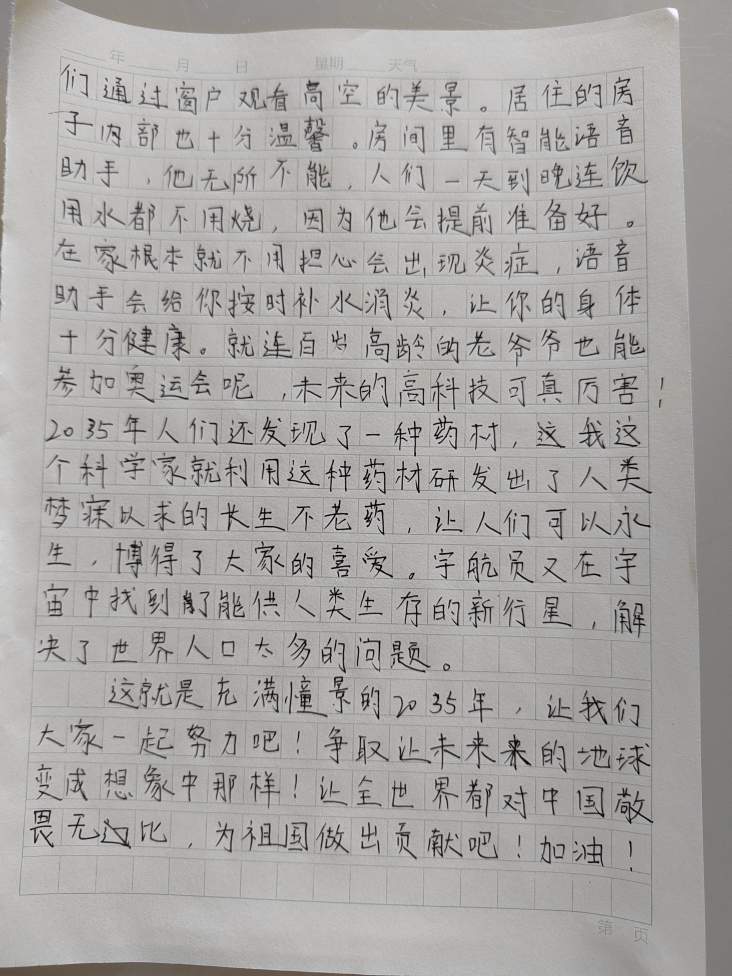 年 月 日 星期 天气
们通过窗户观看高空的美景。居住的房
子内部也十分温馨。房间里有智能语音
助手，他无所不能，人们一天到晚连饮
用水都不用烧，因为他会提前准备好。
在家根本就不用担心会出现炎症，语音
助手会给你按时补水消炎，让你的身体
十分健康。就连百岁高龄的老爷爷也能
参加奥运会呢，未来的高科技可真厉害！
2035年人们还发现了一种药材，这我这
个科学家就利用这种药材研发出了人类
梦寐以求的长生不老药，让人们可以永
生，博得了大家的喜爱。宇航员又在宇
宙中找到了能供人类生存的新行星，解
决了世界人口太多的问题。
这就是充满憧景的2035年，让我们
大家一起努力吧！争取让未来来的地球
变成想象中那样！让全世界都对中国敬
畏无比，为祖国做出贡献吧！加油！
第 页